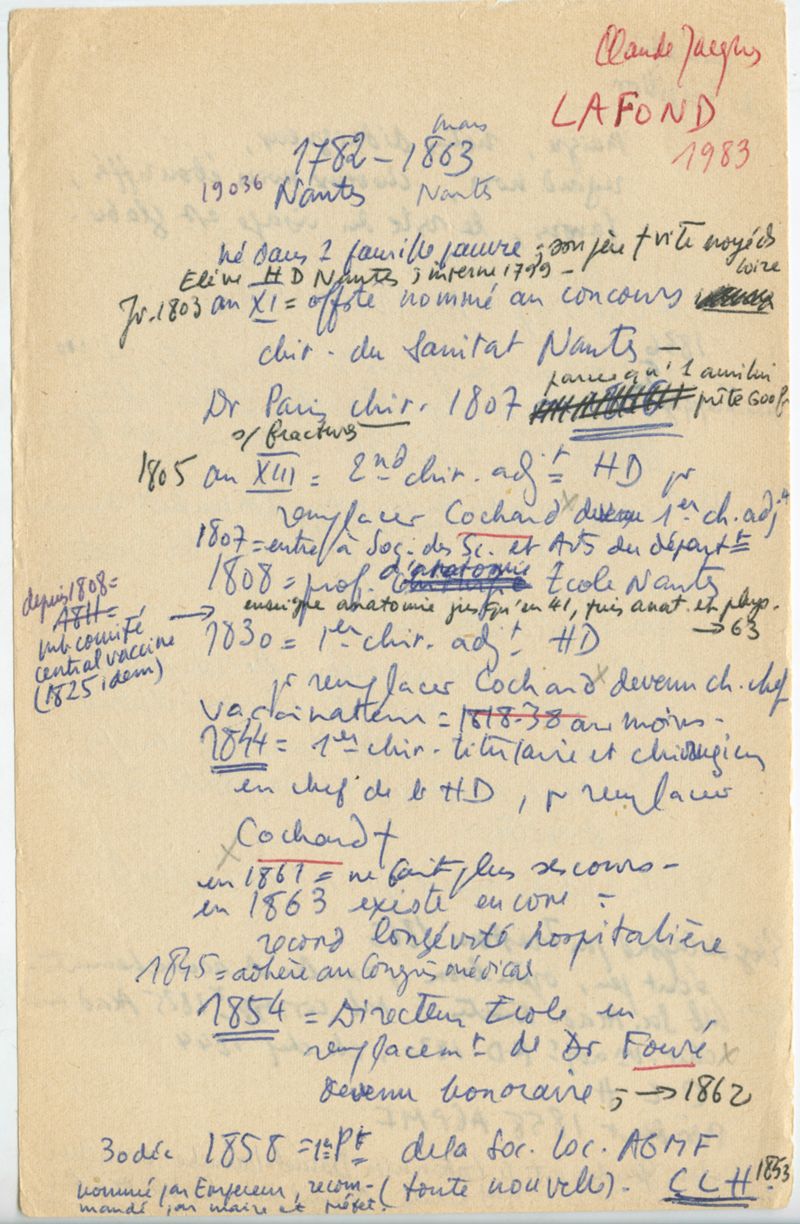 Claude Jacques
LAFOND
1983
mars
1782 – 1863
19036 Nantes Nantes
né dans 1 famille pauvre ; son père † vite noyé ds
Loire
Elève HD Nantes ; interne 1799 –
Jr. 1803 an XI = offste nommé au concours
chir. du Sanitat Nantes –
parce qu'1 ami lui
Dr Paris chir. 1807 prête 600 f
s/ fractures
1805 an XIII = 2nd chir. adjt HD pr
remplacer Cochard devenu 1er ch. adjt
1807 = entre à Soc. des Sc. et Arts du départt
1808 = prof. d'anatomie Ecole Nantes
depuis 1808 =
A8H =
mb comité
central vaccine
(1825 idem)
→ enseigne anatomie jusqu'en 41, puis anat. et phys.
→ 63
1830 = 1er chir. adjt HD
pr remplacer Cochard devenu ch. chef
Vaccinateur = 1818-38 au moins –
1844 = 1er chir. titulaire et chirurgien
en chef de l' HD, pr remplacer
Cochard †
en 1861 = ne fait plus ses cours –
en 1863 existe encore =
record longévité hospitalière
1845 = adhère au Congrès médical
1854 = Directeur Ecole en
remplacemt de Dr Fouré
devenu honoraire ; → 1862
30 déc 1858 = 1er Pt de la Soc. loc. AGMF
nommé par Empereur, recom- (toute nouvelle). CLH 1853
mandé par maire et préfet.